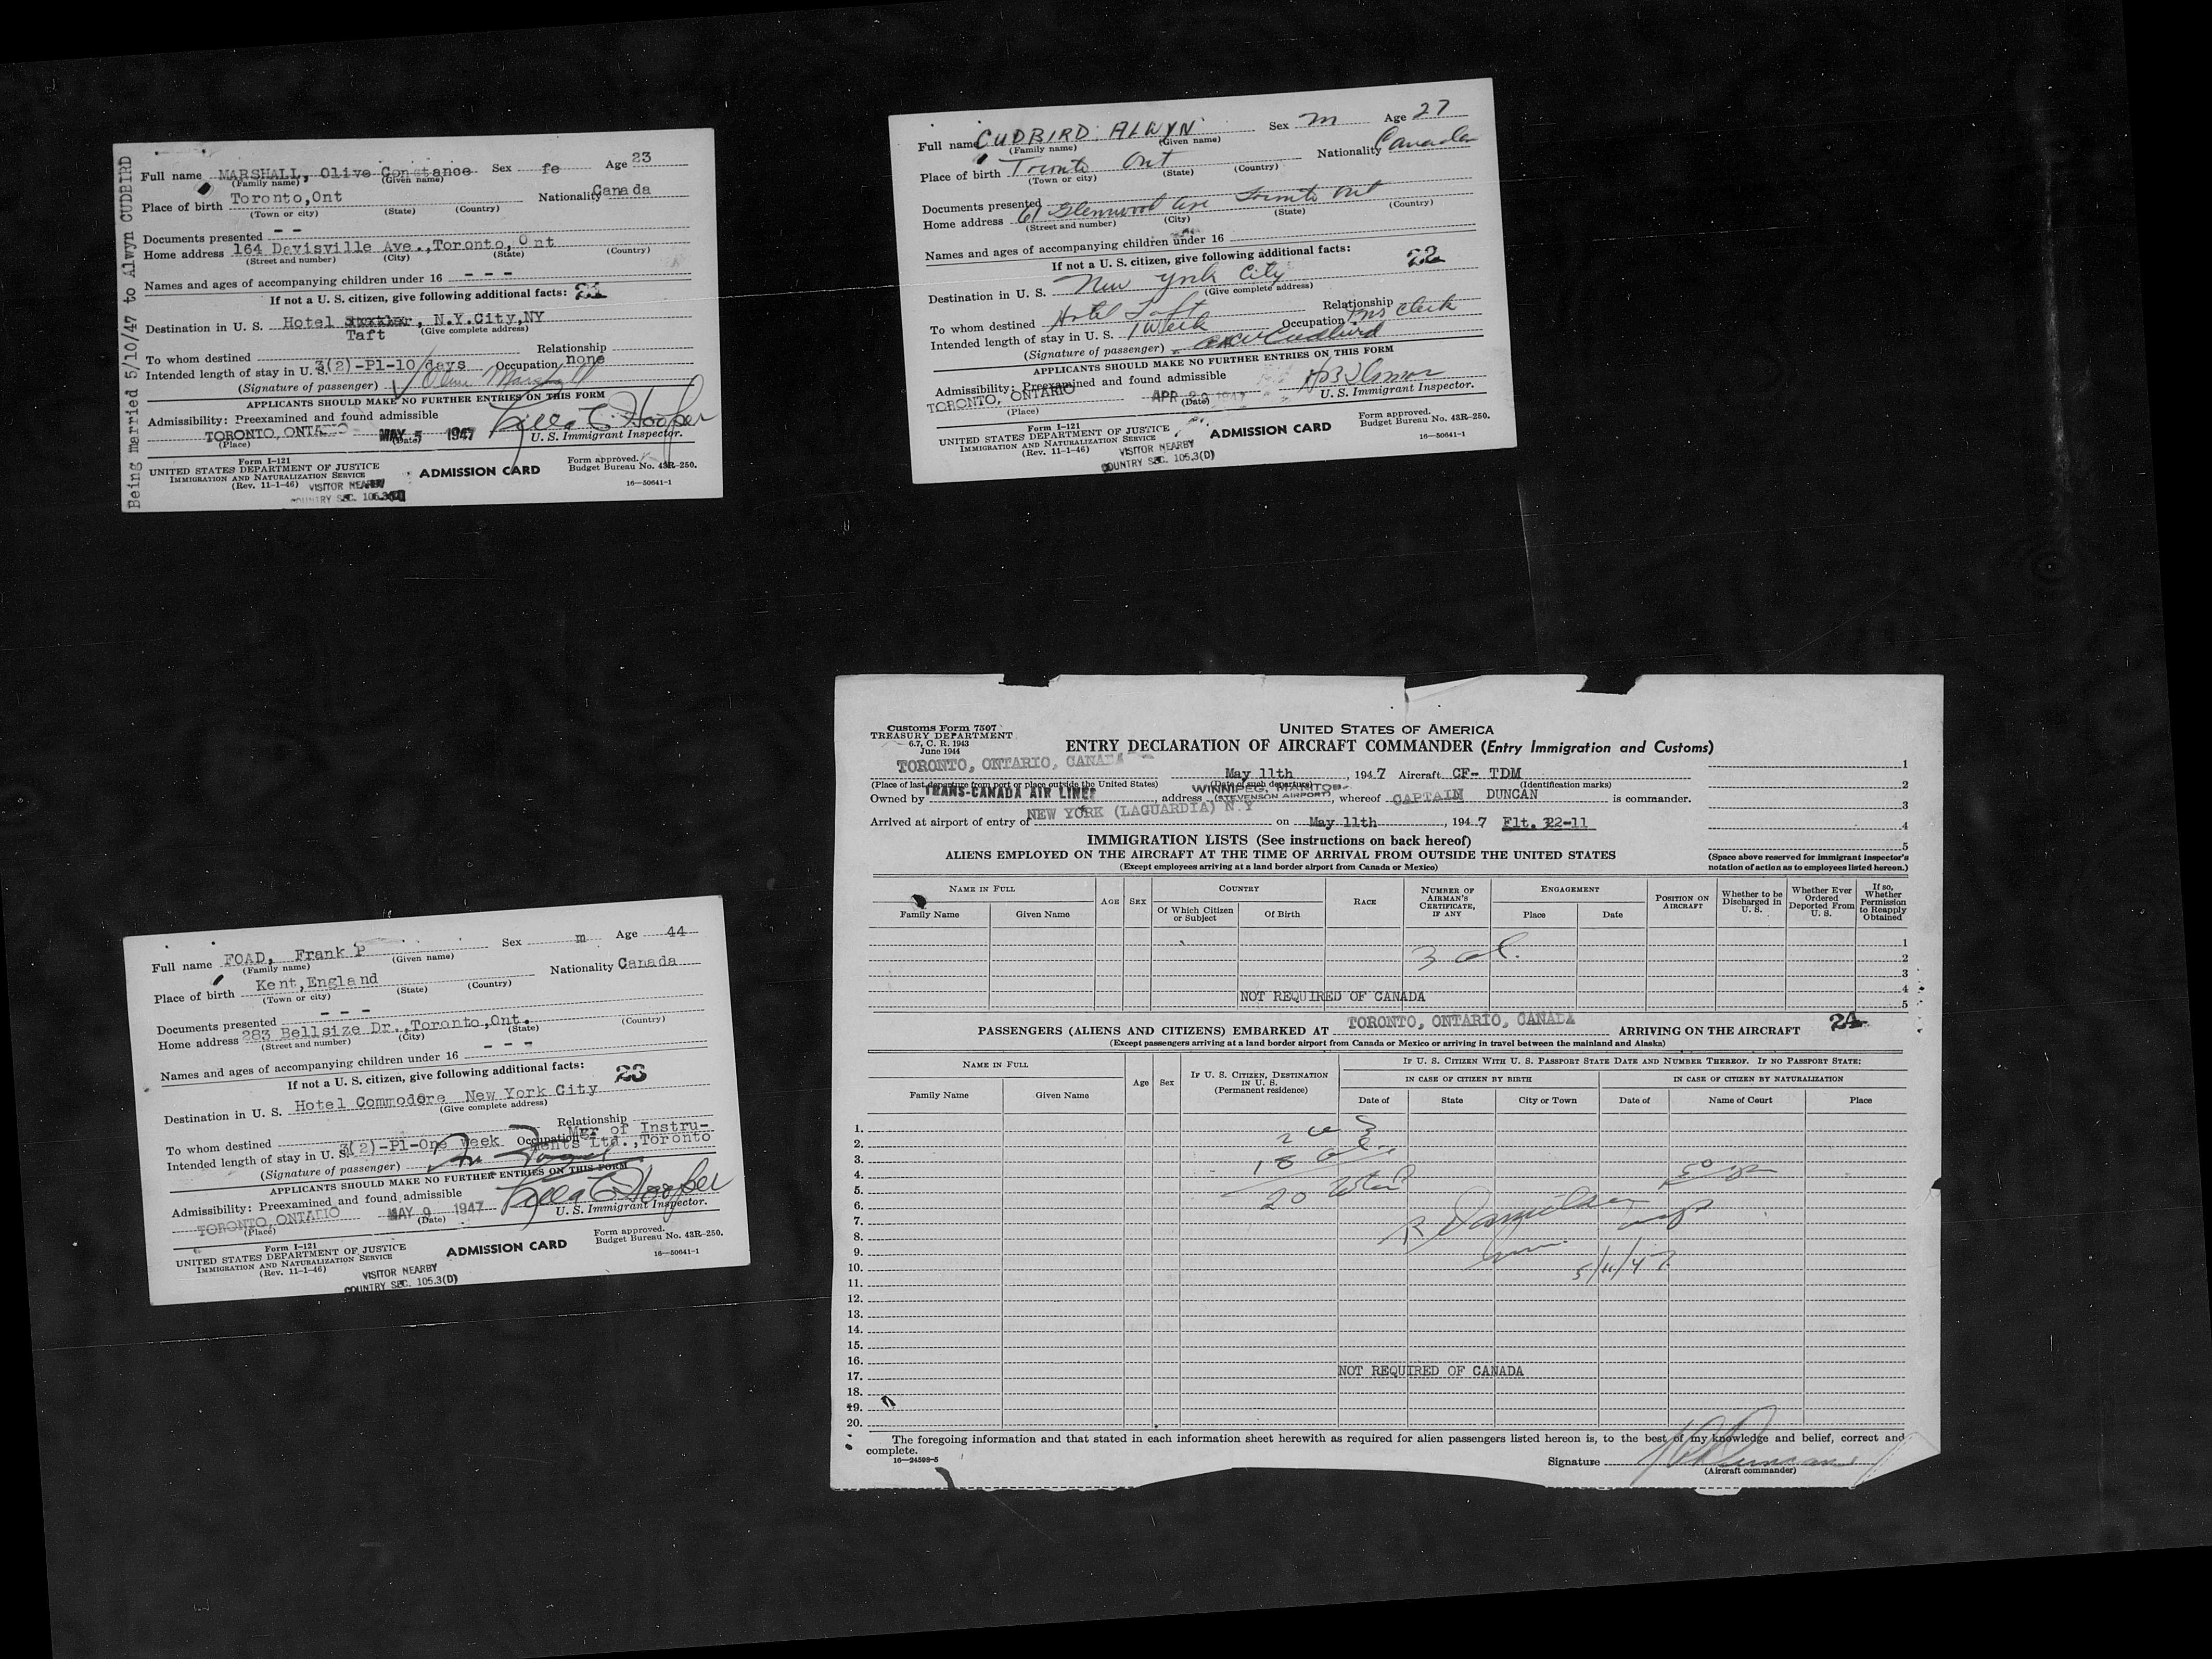 Being married 5/10/47 to Alwyn CUDBIRD
Full name MARSHALL, Olive Constance Sex fe Age 23
(Family name) (Given name)
Place of birth Toronto,Ont Nationality Canada
(Town or city) (State) (Country)
Documents presented - -
Home address 164 Davisville Ave.,Toronto,Ont
(Street and number) (City) (State) (Country)
Names and ages of accompanying children under 16 - - -
If not a U. S. citizen, give following additional facts: 21
Destination in U. S. Hotel , N.Y.City,NY
Taft (Give complete address)
To whom destined Relationship
Intended length of stay in U. S. 3(2)-Pl-10 days Occupation none
(Signature of passenger) Olive Marshall
APPLICANTS SHOULD MAKE NO FURTHER ENTRIES ON THIS FORM
Admissibility: Preexamined and found admissible
TORONTO, ONTARIO MAY 5 1947 Lella C Hooper
(Place) (Date) U. S. Immigrant Inspector.
Form I-121
UNITED STATES DEPARTMENT OF JUSTICE
IMMIGRATION AND NATURALIZATION SERVICE
(Rev. 11-1-46)
ADMISSION CARD
Form approved.
Budget Bureau No. 43R-250.
16—50641-1
VISITOR NEARBY
COUNTRY SEC. 105.3(D)
Full name CUDBIRD ALWYN Sex M Age 27
(Family name) (Given name)
Place of birth Toronto Ont Nationality Canada
(Town or city) (State) (Country)
Documents presented
Home address 61 Glenwood Ave Toronto Ont
(Street and number) (City) (State) (Country)
Names and ages of accompanying children under 16
If not a U. S. citizen, give following additional facts: 22
Destination in U. S. New York City
(Give complete address)
To whom destined Hotel Taft Relationship
Intended length of stay in U. S. 1 Week Occupation Ins Clerk
(Signature of passenger) Cudbird
APPLICANTS SHOULD MAKE NO FURTHER ENTRIES ON THIS FORM
Admissibility: Preexamined and found admissible
TORONTO, ONTARIO APR 1947
(Place) (Date) U. S. Immigrant Inspector.
Form I-121
UNITED STATES DEPARTMENT OF JUSTICE
IMMIGRATION AND NATURALIZATION SERVICE
(Rev. 11-1-46)
ADMISSION CARD
Form approved.
Budget Bureau No. 43R-250.
16—50641-1
VISITOR NEARBY
COUNTRY SEC. 105.3(D)
Full name FOAD, Frank P Sex m Age 44
(Family name) (Given name)
Place of birth Kent,England Nationality Canada
(Town or city) (State) (Country)
Documents presented - - -
Home address 283 Bellsize Dr.,Toronto,Ont.
(Street and number) (City) (State) (Country)
Names and ages of accompanying children under 16 - - -
If not a U. S. citizen, give following additional facts: 23
Destination in U. S. Hotel Commodore New York City
(Give complete address)
To whom destined Relationship
Intended length of stay in U. S. 3(2)-Pl-One week Occupation Mgr of Instru-
ments Ltd.,Toronto
(Signature of passenger)
APPLICANTS SHOULD MAKE NO FURTHER ENTRIES ON THIS FORM
Admissibility: Preexamined and found admissible
TORONTO, ONTARIO MAY 9 1947 Lella C Hooper
(Place) (Date) U. S. Immigrant Inspector.
Form I-121
UNITED STATES DEPARTMENT OF JUSTICE
IMMIGRATION AND NATURALIZATION SERVICE
(Rev. 11-1-46)
ADMISSION CARD
Form approved.
Budget Bureau No. 43R-250.
16—50641-1
VISITOR NEARBY
COUNTRY SEC. 105.3(D)
Customs Form 7507
TREASURY DEPARTMENT
6.7, C. R. 1943
June 1944
UNITED STATES OF AMERICA
ENTRY DECLARATION OF AIRCRAFT COMMANDER (Entry Immigration and Customs)
TORONTO, ONTARIO, CANADA May 11th, 1947 Aircraft CF- TDM
(Place of last departure from port or place outside the United States) (Date of such departure) (Identification marks)
Owned by TRANS-CANADA AIR LINES, address WINNIPEG, MANITOBA (STEVENSON AIRPORT), whereof CAPTAIN DUNCAN is commander.
Arrived at airport of entry of NEW YORK (LAGUARDIA) N.Y on May 11th, 1947 Flt. 322-11
1
2
3
4
5
(Space above reserved for immigrant inspector's
notation of action as to employees listed hereon.)
IMMIGRATION LISTS (See instructions on back hereof)
ALIENS EMPLOYED ON THE AIRCRAFT AT THE TIME OF ARRIVAL FROM OUTSIDE THE UNITED STATES
(Except employees arriving at a land border airport from Canada or Mexico)
NAME IN FULL
Family Name Given Name
AGE SEX
COUNTRY
Of Which Citizen or Subject Of Birth
RACE
NUMBER OF AIRMAN'S CERTIFICATE, IF ANY
ENGAGEMENT
Place Date
POSITION ON AIRCRAFT
Whether to be Discharged in U. S.
Whether Ever Ordered Deported From U. S.
If so, Whether Permission to Reapply Obtained
1
3 al. 2
3
4
NOT REQUIRED OF CANADA 5
PASSENGERS (ALIENS AND CITIZENS) EMBARKED AT TORONTO, ONTARIO, CANADA ARRIVING ON THE AIRCRAFT 24
(Except passengers arriving at a land border airport from Canada or Mexico or arriving in travel between the mainland and Alaska)
NAME IN FULL
Family Name Given Name
Age Sex
IF U. S. CITIZEN, DESTINATION IN U. S.
(Permanent residence)
IF U. S. CITIZEN WITH U. S. PASSPORT STATE DATE AND NUMBER THEREOF. IF NO PASSPORT STATE:
IN CASE OF CITIZEN BY BIRTH IN CASE OF CITIZEN BY NATURALIZATION
Date of State City or Town Date of Name of Court Place
1.
2. 2
3. 18
4.
5. 20 Total
6.
7.
8.
9.
10. 5/11/47
11.
12.
13.
14.
15.
16.
17. NOT REQUIRED OF CANADA
18.
19.
20.
The foregoing information and that stated in each information sheet herewith as required for alien passengers listed hereon is, to the best of my knowledge and belief, correct and
complete.
16—24598-5
Signature Duncan
(Aircraft commander)